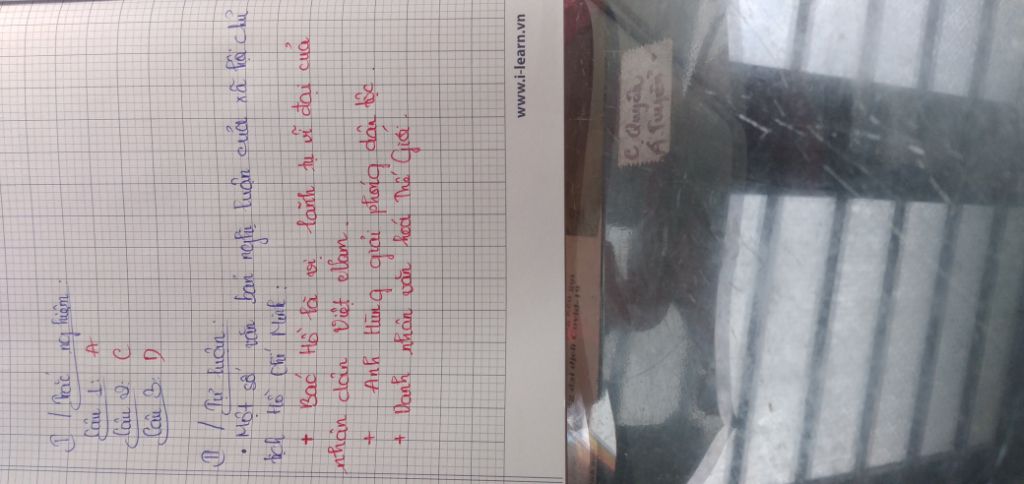 I/ Trắc nghiệm:
Câu 1: A
Câu 2: C
Câu 3: D
II/ Tự luận:
• Một số văn bản nghị luận của xã hội chủ
tịch Hồ Chí Minh:
+ Bác Hồ là vị lãnh tụ vĩ đại của
nhân dân Việt Nam.
+ Anh Hùng giải phóng dân tộc.
+ Danh nhân văn hoá Thế Giới.
www.i-learn.vn
C Quyên
A Tuyên